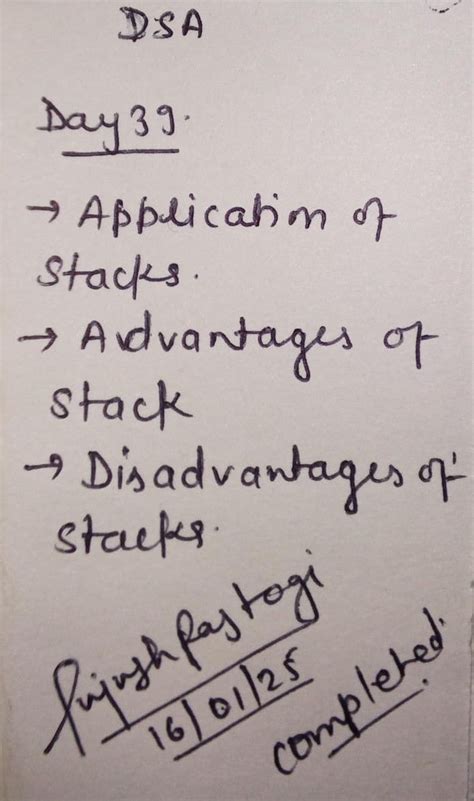 DSA
Day 39.
→ Application of
Stacks.
→ Advantages of
Stack
→ Disadvantages of
Stacks.
Piyush Rastogi
16/01/25
completed.